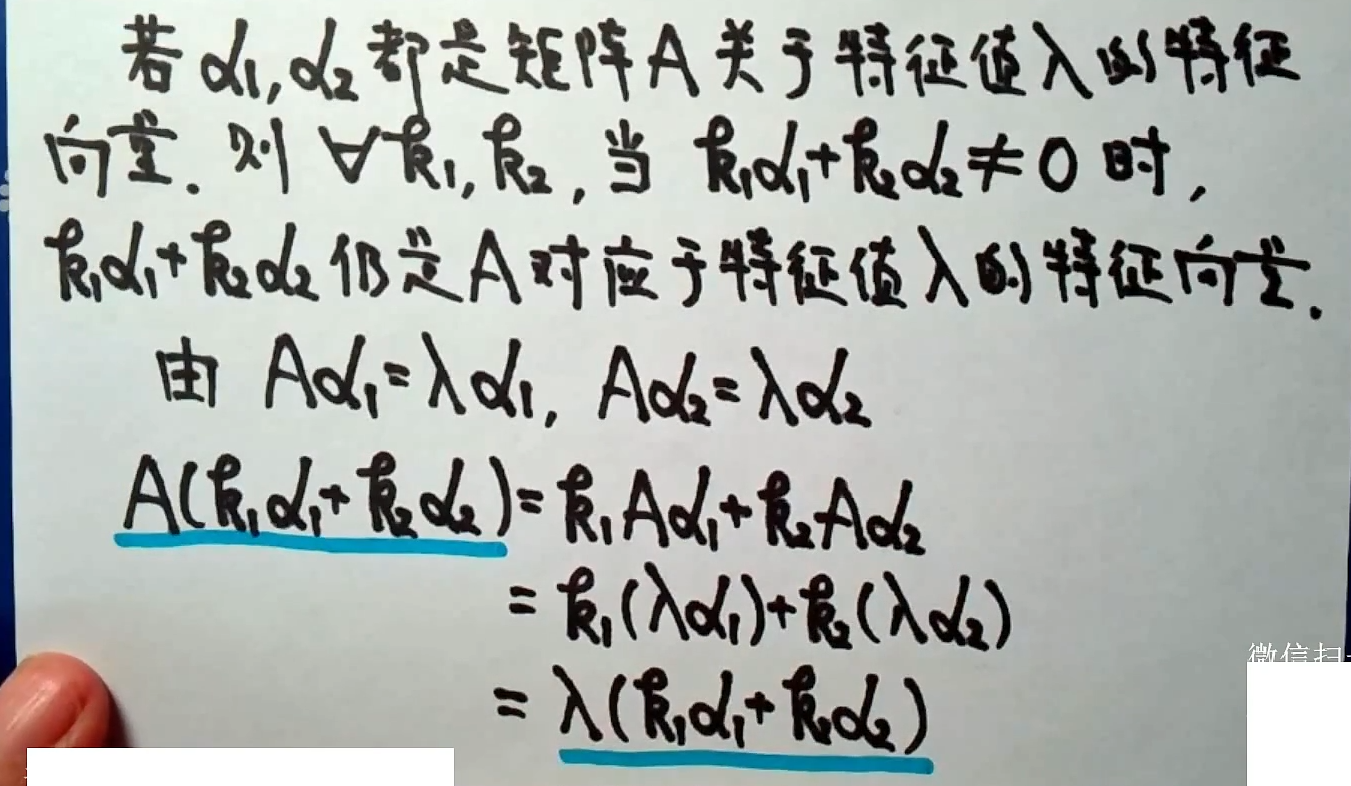 若 α₁, α₂ 都是矩阵 A 关于特征值 λ 的特征
向量. 则 ∀k₁, k₂, 当 k₁α₁+k₂α₂≠0 时,
k₁α₁+k₂α₂ 仍是 A 对应于特征值 λ 的特征向量.
由 Aα₁=λα₁, Aα₂=λα₂
A(k₁α₁+k₂α₂)=k₁Aα₁+k₂Aα₂
=k₁(λα₁)+k₂(λα₂)
=λ(k₁α₁+k₂α₂)
微信扫